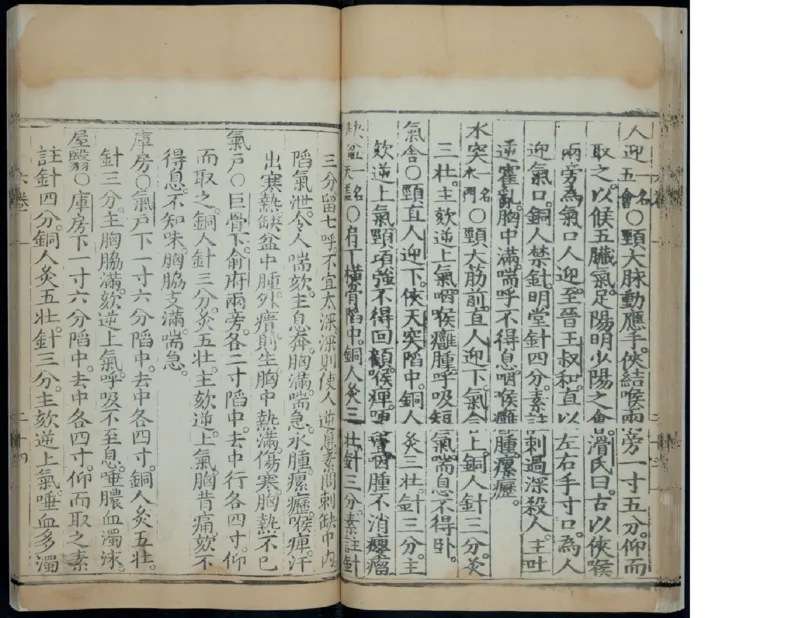 人迎一名五會○頸大脉動應手。俠結喉兩旁一寸五分。仰而
取之。以候五臟氣。足陽明少陽之會。滑氏曰。古以俠喉
兩旁為氣口人迎。至晉王叔和直以左右手寸口為人
迎氣口。銅人禁針。明堂針四分。素註刺過深殺人。主吐
逆霍亂。胸中滿。喘呼不得息。咽喉癰腫瘰癧。
水突一名水門○頸大筋前直人迎下。氣舍上。銅人針三分。灸
三壯。主欬逆上氣。咽喉癰腫。呼吸短氣。喘息不得卧。
氣舍○頸直人迎下。俠天突陷中。銅人灸三壯。針三分。主
欬逆上氣。頸項強不得回顧。喉痺。哽咽腫不消。癭瘤
缺盆一名天蓋○肩下橫骨陷中。銅人灸三壯。針三分。素註針
三分。留七呼。不宜太深。深則使人逆息。素問刺缺中內
陷氣泄。令人喘欬。主息奔。胸滿喘急。水腫瘰癧。喉痺。汗
出寒熱。缺盆中腫。外潰則生。胸中熱滿。傷寒胸熱不已
氣戶○巨骨下。俞府兩旁。各二寸陷中。去中行各四寸。仰
而取之。銅人針三分。灸五壯。主欬逆上氣。胸背痛。欬不
得息。不知味。胸脇支滿。喘急。
庫房○氣戶下一寸六分陷中。去中各四寸。銅人灸五壯。
針三分。主胸脇滿。欬逆上氣。呼吸不至息。唾膿血濁沫。
屋翳○庫房下一寸六分陷中。去中各四寸。仰而取之。素
註針四分。銅人灸五壯。針三分。主欬逆上氣。唾血多濁